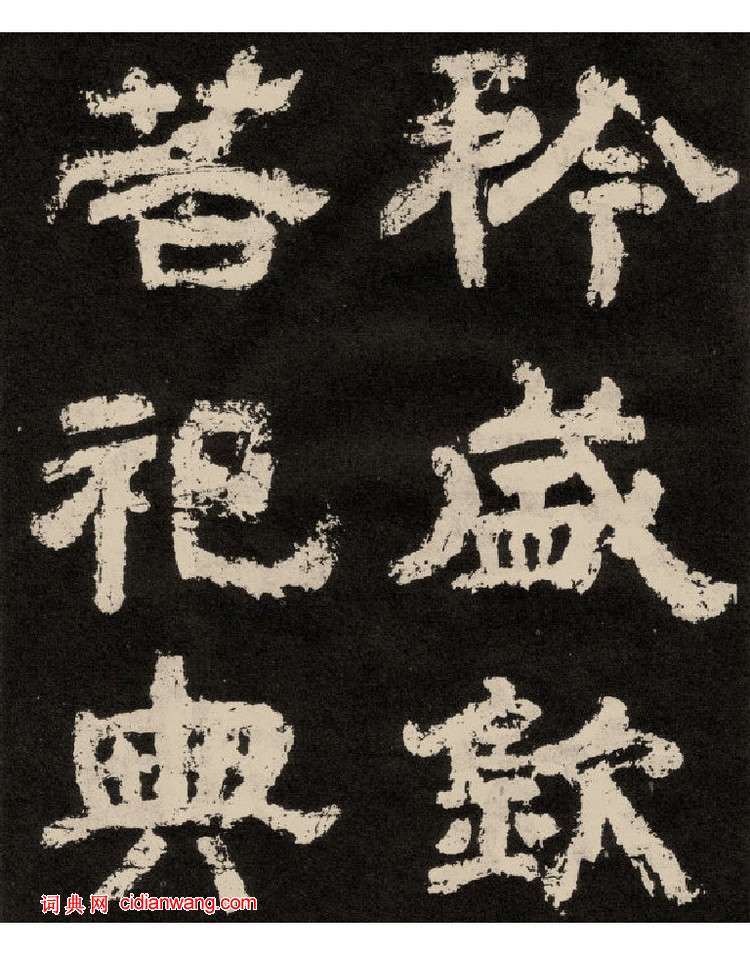 矜盛欽
若祀典
词典网 cidianwang.com